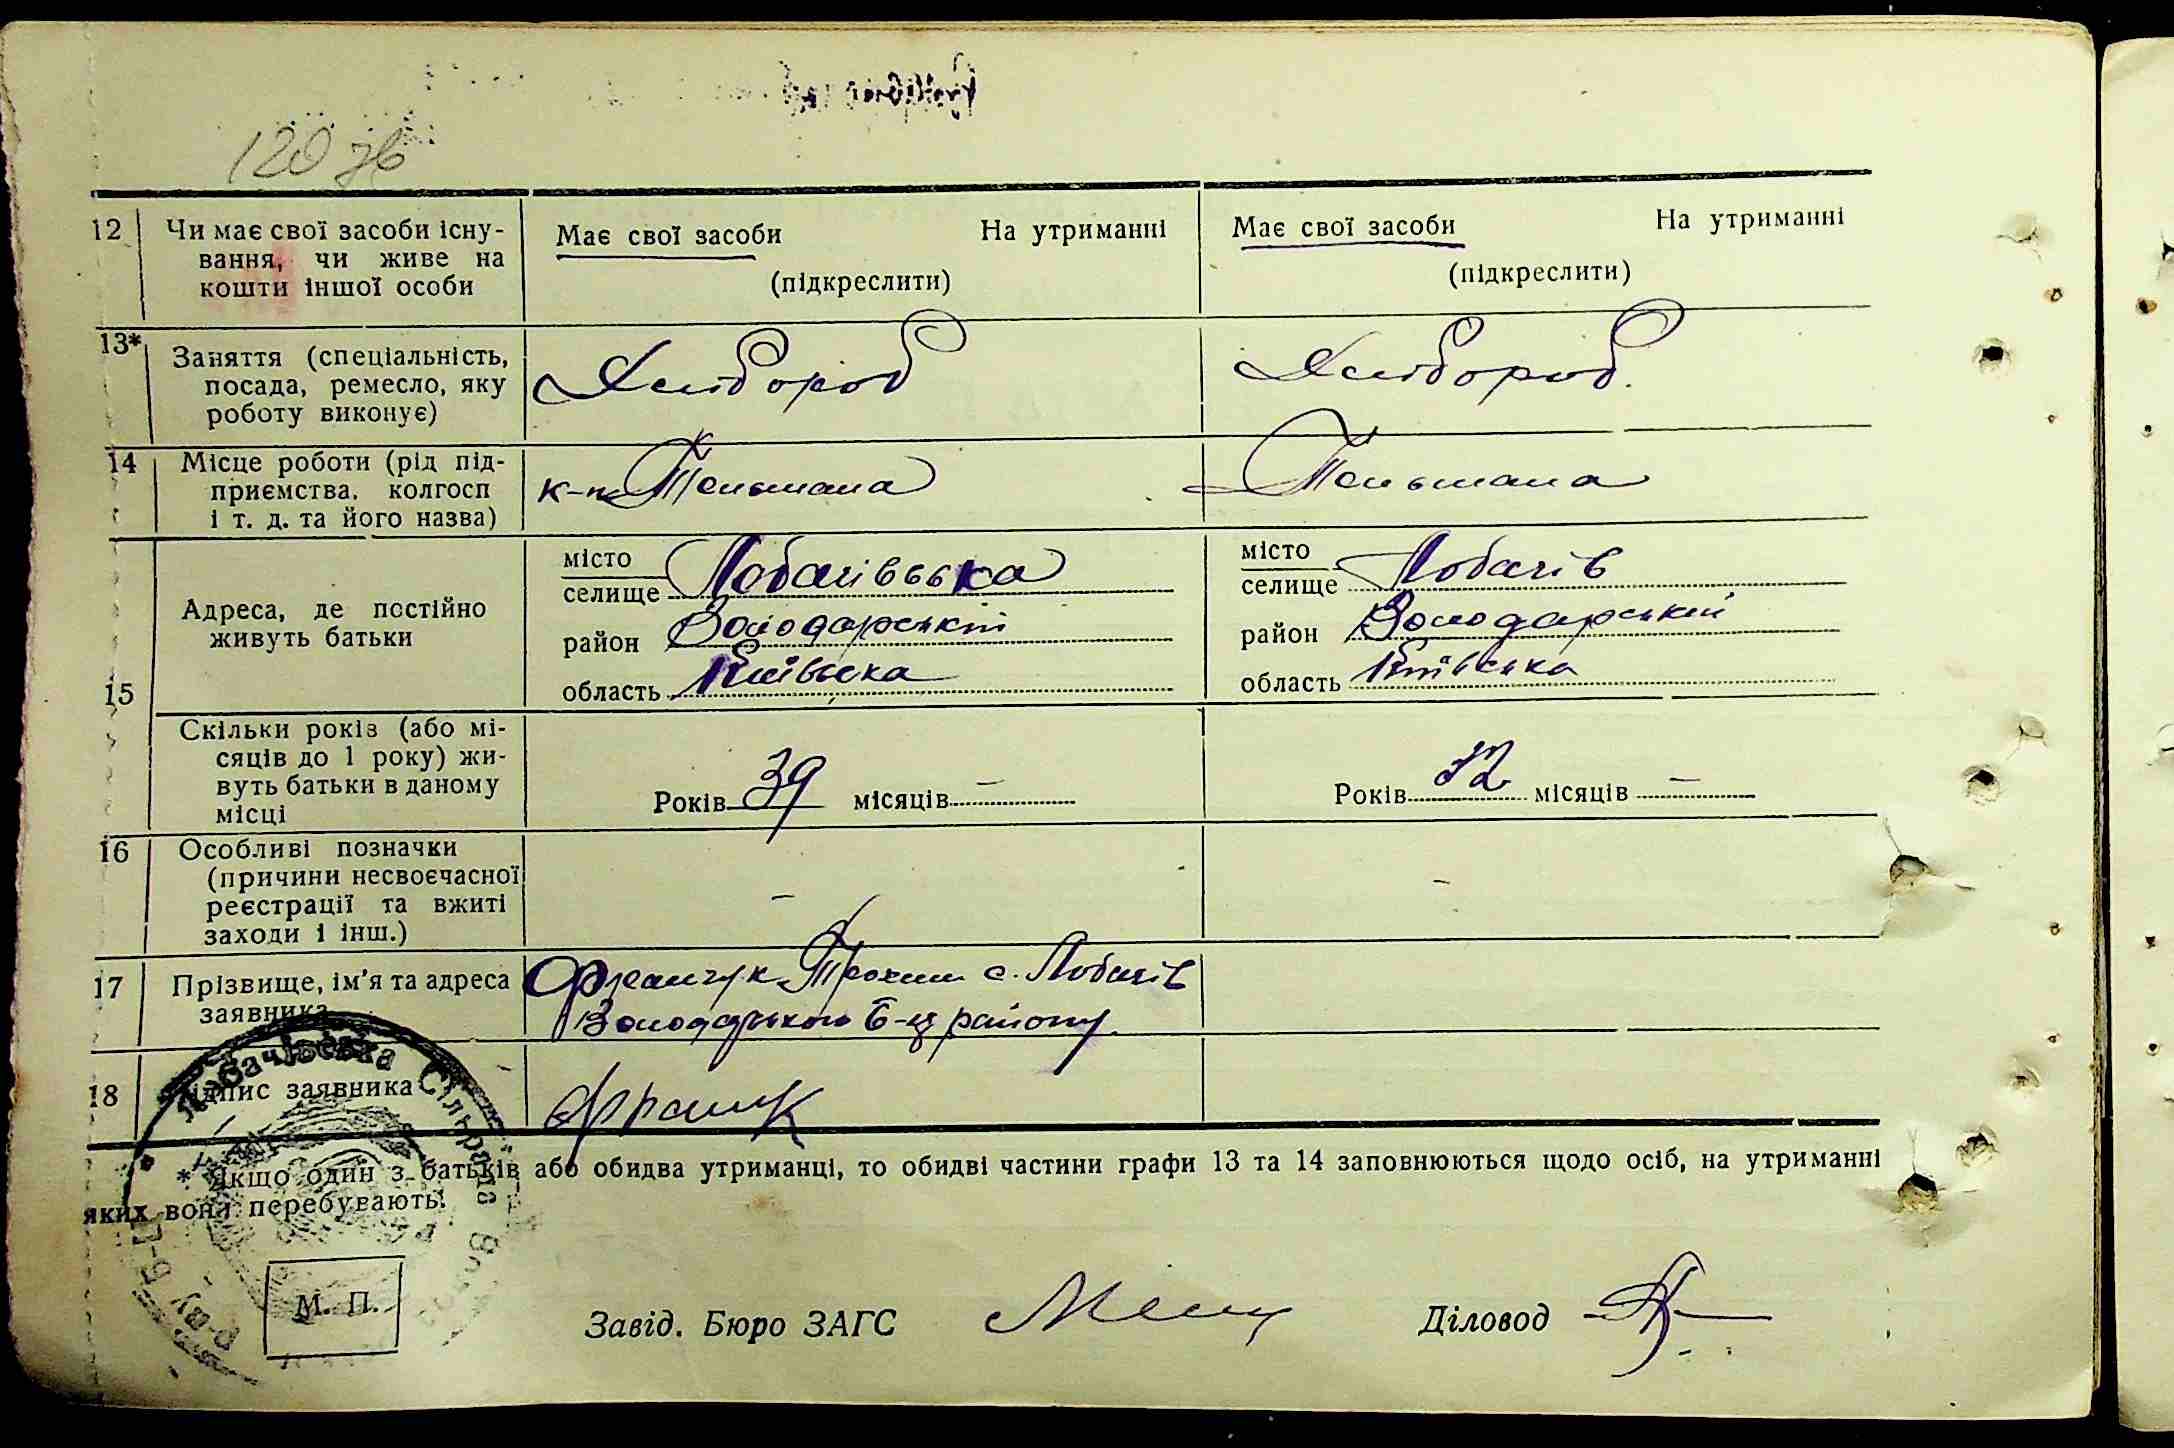 120 зв
12 Чи має свої засоби існу-
вання, чи живе на
кошти іншої особи
Має свої засоби На утриманні
(підкреслити)
Має свої засоби На утриманні
(підкреслити)
13* Заняття (спеціальність,
посада, ремесло, яку
роботу виконує)
Хлібороб
Хлібороб
14 Місце роботи (рід під-
приємства, колгосп
і т. д. та його назва)
к-п Тельмана
Тельмана
15
Адреса, де постійно
живуть батьки
місто
селище Лобачівська
район Володарський
область Київська
місто
селище Лобачів
район Володарський
область Київська
Скільки років (або мі-
сяців до 1 року) жи-
вуть батьки в даному
місці
Років 39 місяців —
Років 32 місяців —
16 Особливі позначки
(причини несвоєчасної
реєстрації та вжиті
заходи і інш.)
–
–
17 Прізвище, ім'я та адреса
заявника
Франчук Трохим с. Лобачів
Володарського Б-Ц району
18 Підпис заявника
* Якщо один з батьків або обидва утриманці, то обидві частини графи 13 та 14 заповнюються щодо осіб, на утриманні
яких вони перебувають.
Лобачівська Сільрада
р-ну Б-Ц
М. П.
Завід. Бюро ЗАГС
Діловод